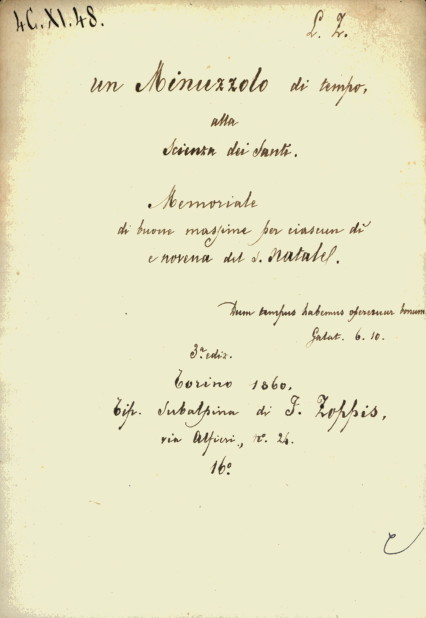 4C.XI.48.
L. Z.
un Minuzzolo di tempo,
alla
Scienza dei Santi.
Memoriale
di buone massime per ciascun dì
e novena del S. Natale.
Dum tempus habemus operemur bonum
Galat. 6. 10.
3.a ediz.
Torino 1860.
Tip. Subalpina di F. Zoppis,
via Alfieri, n.° 24.
16°